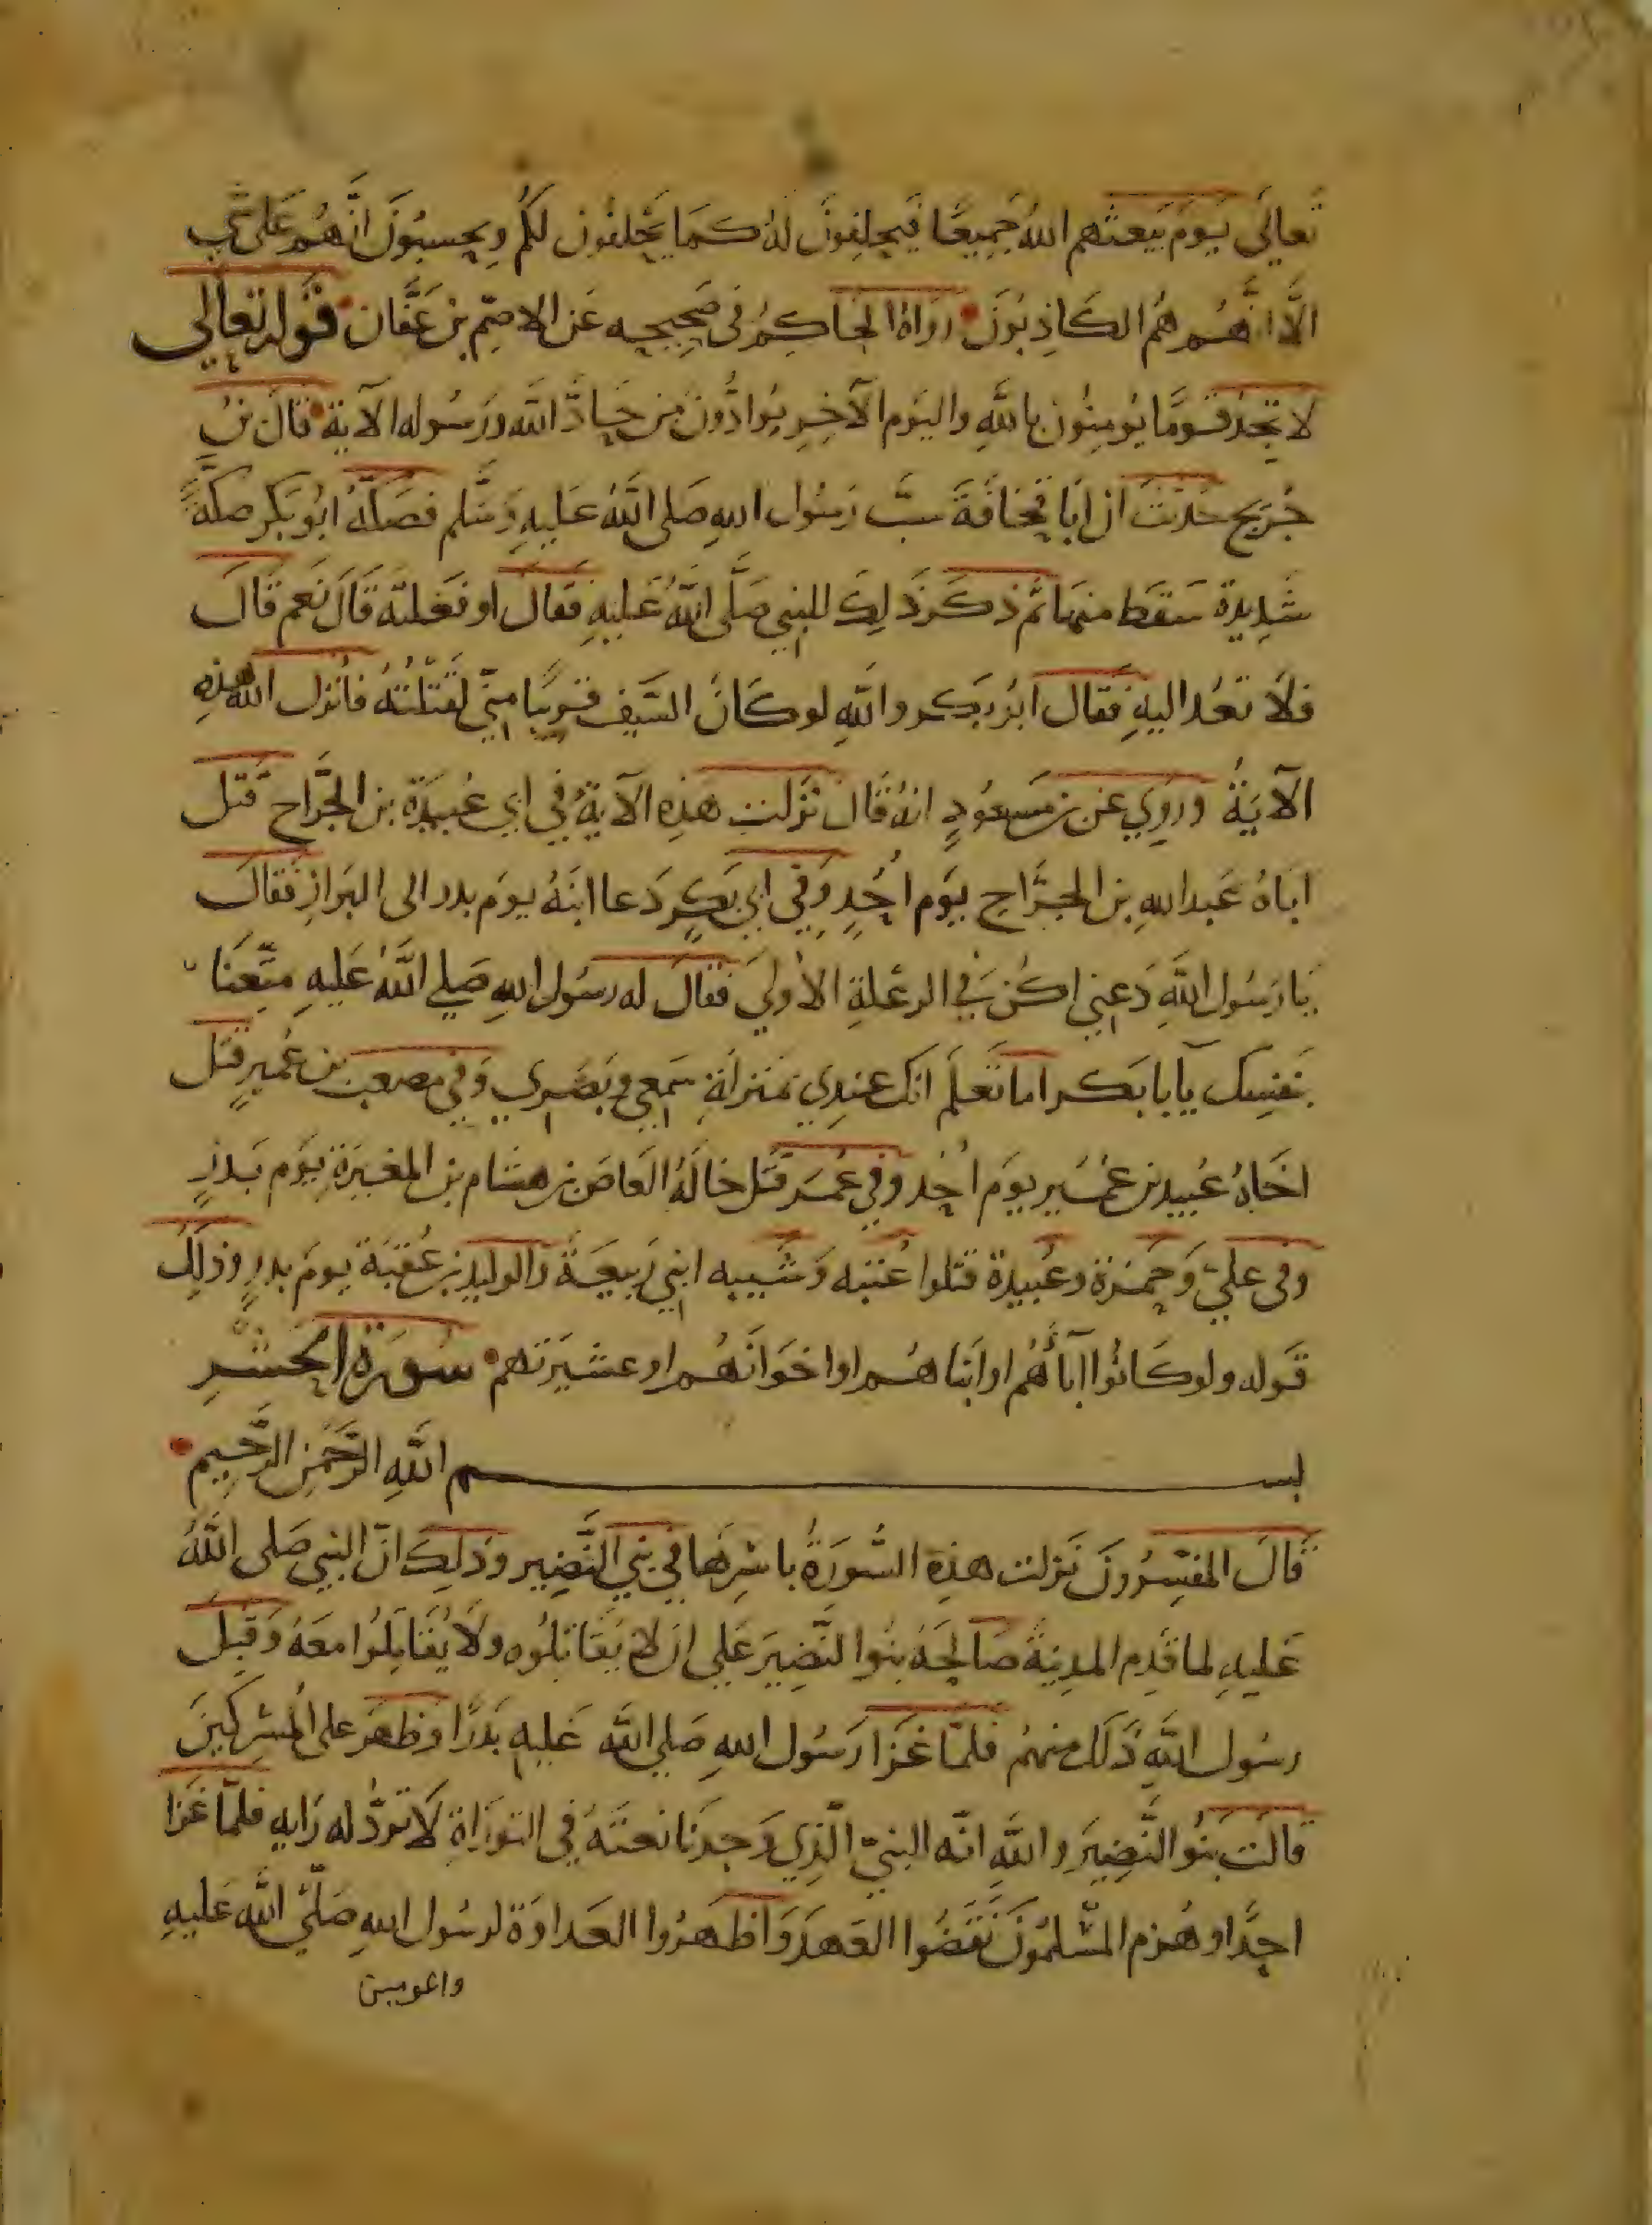 تعالَى يَومَ يَبعثهم اللهُ جَمِيعًا فيَحلِفونَ لهُ كمَا يَحْلفُون لكُم ويحسبُونَ انَّهُم عَلى شي
الَّا انَّهُم هُم الكَاذِبُونَ رَوَاهُ الحَاكِمُ في صَحِيحِه عَن الاصمّ بن عَفَّان قوله تعالى
لا تجدُ قومًا يُومِنُون باللهِ واليَوم الآخِرِ يُوادُّون مَن حَادَّ اللّه ورَسُوله الآية قالَ بنُ
جُرَيج حُدّثتُ ان اَبَا قُحَافَةَ سَبَّ رَسُول اللهِ صَلى اللّهُ عَليهِ وَسَلّم فصَكّهُ ابُو بَكر صكّةً
شَدِيدة سَقط منهَا ثم ذكَر ذَلِك للنبيِ صَلَّى اللّهُ عَليهِ فقالَ او فَعَلتهُ قَالَ نَعم قَالَ
فلاَ تَعُد اليهِ فقالَ ابُو بَكر واللّهِ لو كَانَ السَّيف قرِيبًا مِنّي لقَتَلتُهُ فانزل اللّه هذِهِ
الآيَةُ ورُوِي عَن بن مَسعُودٍ انهُ قَالَ نزَلت هذِه الآيَةُ في ابي عُبيدَة بن الجَرَّاح قَتل
ابَاهُ عَبد اللهِ بن الجَرَّاح يَوم اُحُدٍ وَفي ابي بَكرٍ دَعا ابنَهُ يومَ بدر الى البَراز فقالَ
يَا رَسُول اللّهَ دَعنِي اكُن في الرعْلةِ الاُولَي فقالَ له رسُول اللهِ صَلي اللّهُ عَليهِ متِّعنَا
بنفسِك يَا بابَكر اما تَعلَم انك عندِي بمنزلَةِ سَمعي وَبَصَري وَفي مصعب بن عُميرٍ قتل
اخَاهُ عُبيد بن عُمَير يومَ اُحُد وَفي عُمَر قَتل خالَهُ العَاصَ بن هشام بن المغيرَةِ يَوم بَدرٍ
وفى عليّ وَحَمزة وعُبيدة قتلوا عُتبه وَشَيبه ابنَي رَبيعَة وَالوليد بن عُقبَة يومَ بدرٍ وذلِك
قَوله ولو كانُوا اباَهُم او اَبناهُم او اخوَانَهُم او عشيرَتهم سُورَة الحَشرِ
بســـــــم اللّهِ الرّحمَنِ الرَّحيم
قالَ المفسّرُونَ نَزلت هذِه السُّورَةُ باسْرِهَا في بَنِي النَّضِير وذَلِك انّ النبي صَلى اللّهُ
عَليهِ لما قَدِم المدِينَةَ صَالحَهُ بنُوا النَّضِيرَ عَلي ان لا يقَاتلُوه ولَا يُقَاتِلُوا معَهُ وَقبِلَ
رسُول اللّهِ ذَلك منهُم فلمّا غَزَا رَسُول اللهِ صَلي اللّه عَليهِ بَدْرًا وظَهَر على المُشرِكينَ
قالَت بنُو النَّضِيرَ واللّهِ انّه النبيّ الّذِي وَجدنَا نعتَهُ في التورَاةِ لَا تُردُّ له رَايه فلمّا غَزا
احدًا وهُزم المُسْلمُونَ نَقَضُوا العَهدَ وَاظهَرُوا العَداوَة لرسُول اللهِ صَلّي اللّهُ عَليهِ
والمومنين